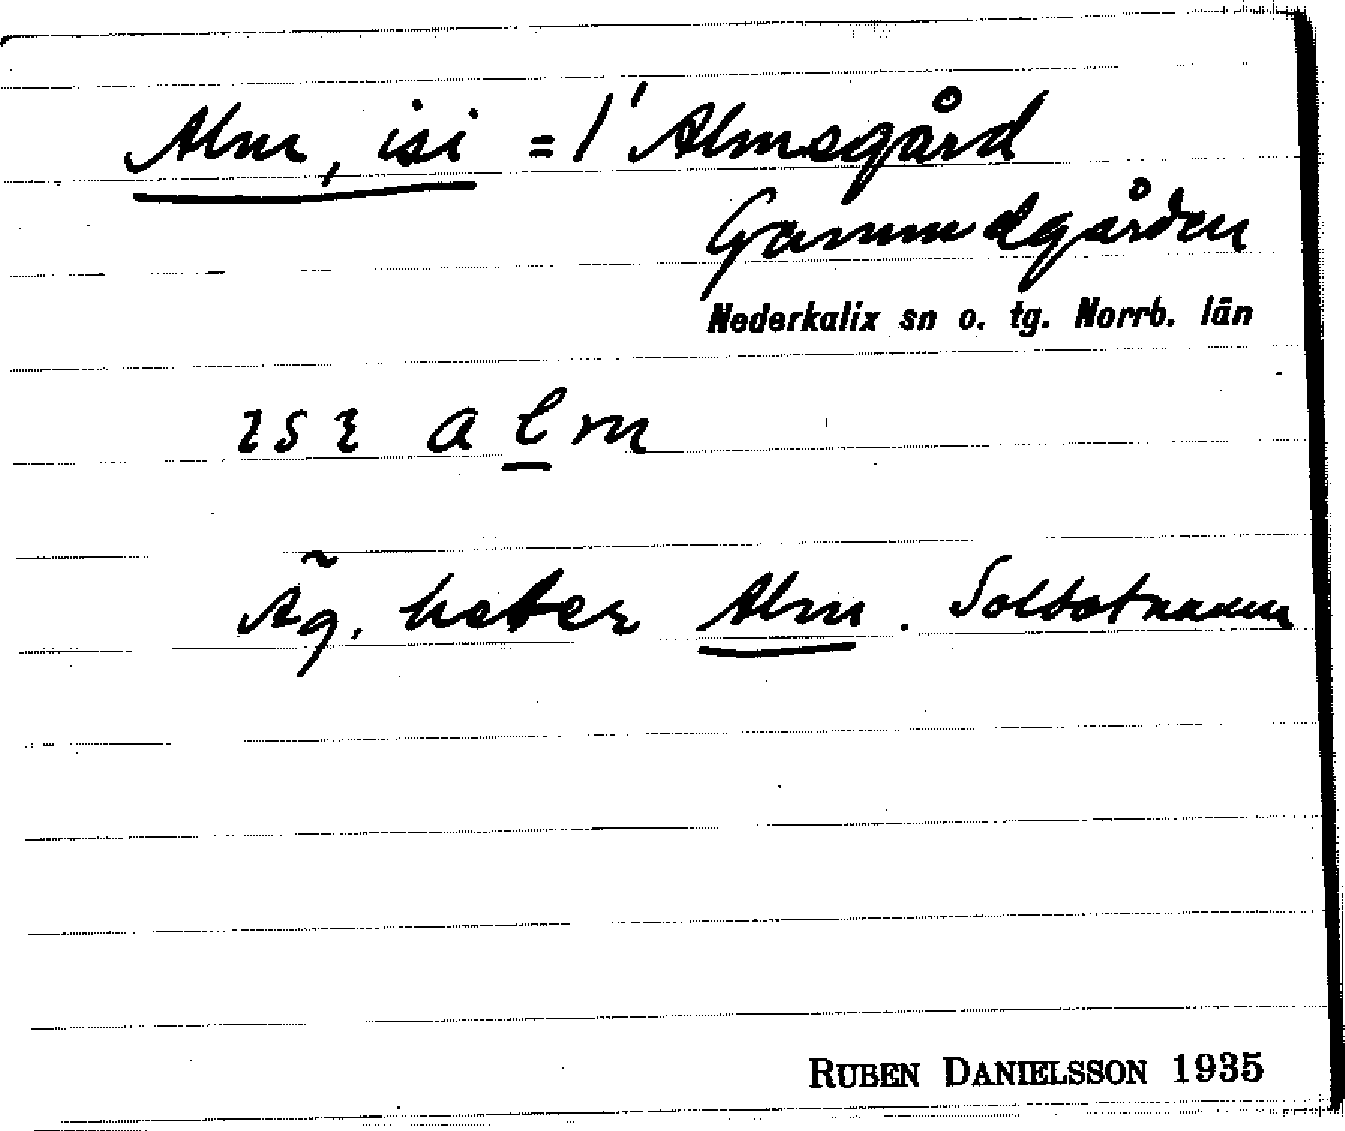 Alm, isi = 1' Almsgård
Gammelgården
Nederkalix sn o. tg. Norrb. län
ısı alm
Äg. heter Alm. Soldatnamn
RUBEN DANIELSSON 1935